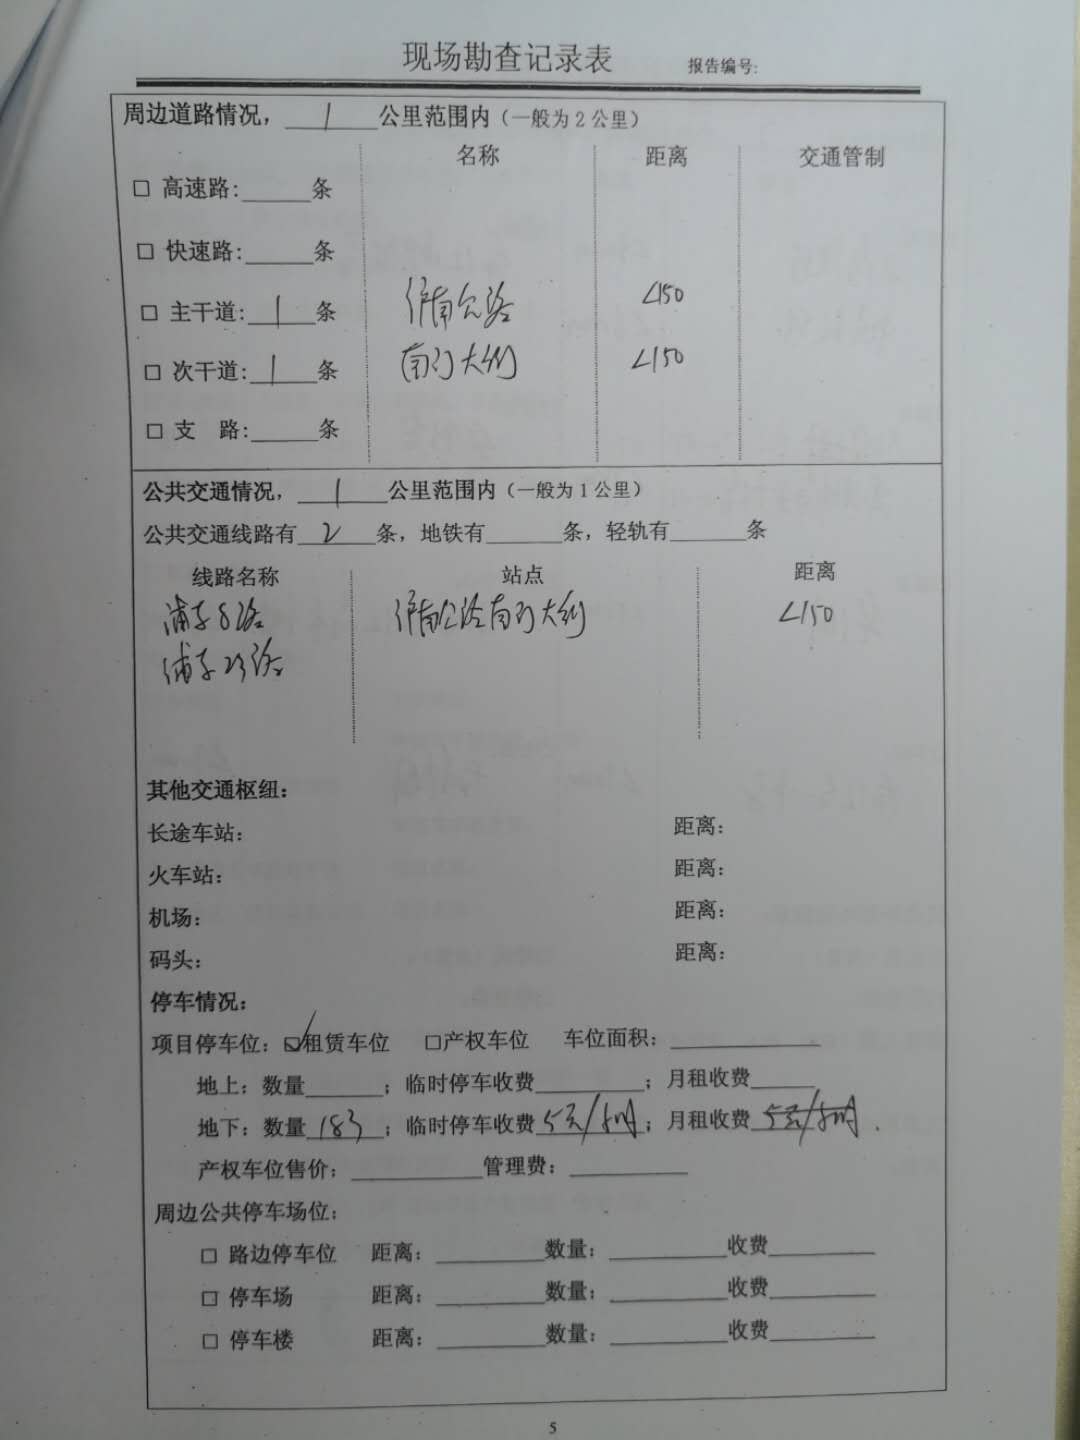 现场勘查记录表 报告编号:
周边道路情况，1公里范围内（一般为2公里）
名称 距离 交通管制
□ 高速路:______条
□ 快速路:______条
□ 主干道:1条 沪南公路 <150
□ 次干道:1条 南门大街 <150
□ 支 路:______条
公共交通情况，1公里范围内（一般为1公里）
公共交通线路有2条，地铁有______条，轻轨有______条
线路名称 站点 距离
浦东8路 沪南公路南门大街 <150
浦东23路
其他交通枢纽：
长途车站： 距离：
火车站： 距离：
机场： 距离：
码头： 距离：
停车情况：
项目停车位：☑租赁车位 □产权车位 车位面积：______
地上：数量______；临时停车收费______；月租收费______
地下：数量183；临时停车收费5元/小时；月租收费5元/小时.
产权车位售价：______管理费：______
周边公共停车场位：
□ 路边停车位 距离：______数量：______收费______
□ 停车场 距离：______数量：______收费______
□ 停车楼 距离：______数量：______收费______
5